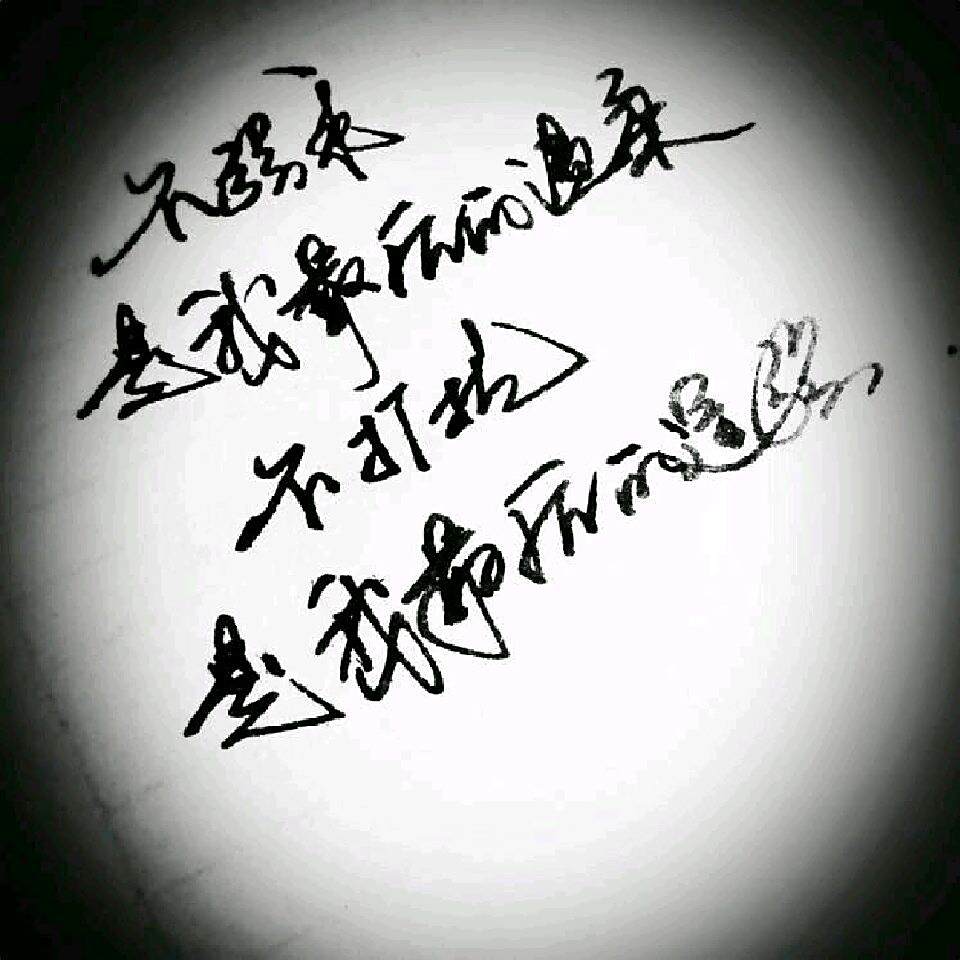 不强求
是我最后的温柔
不打扰
是我最后的退路